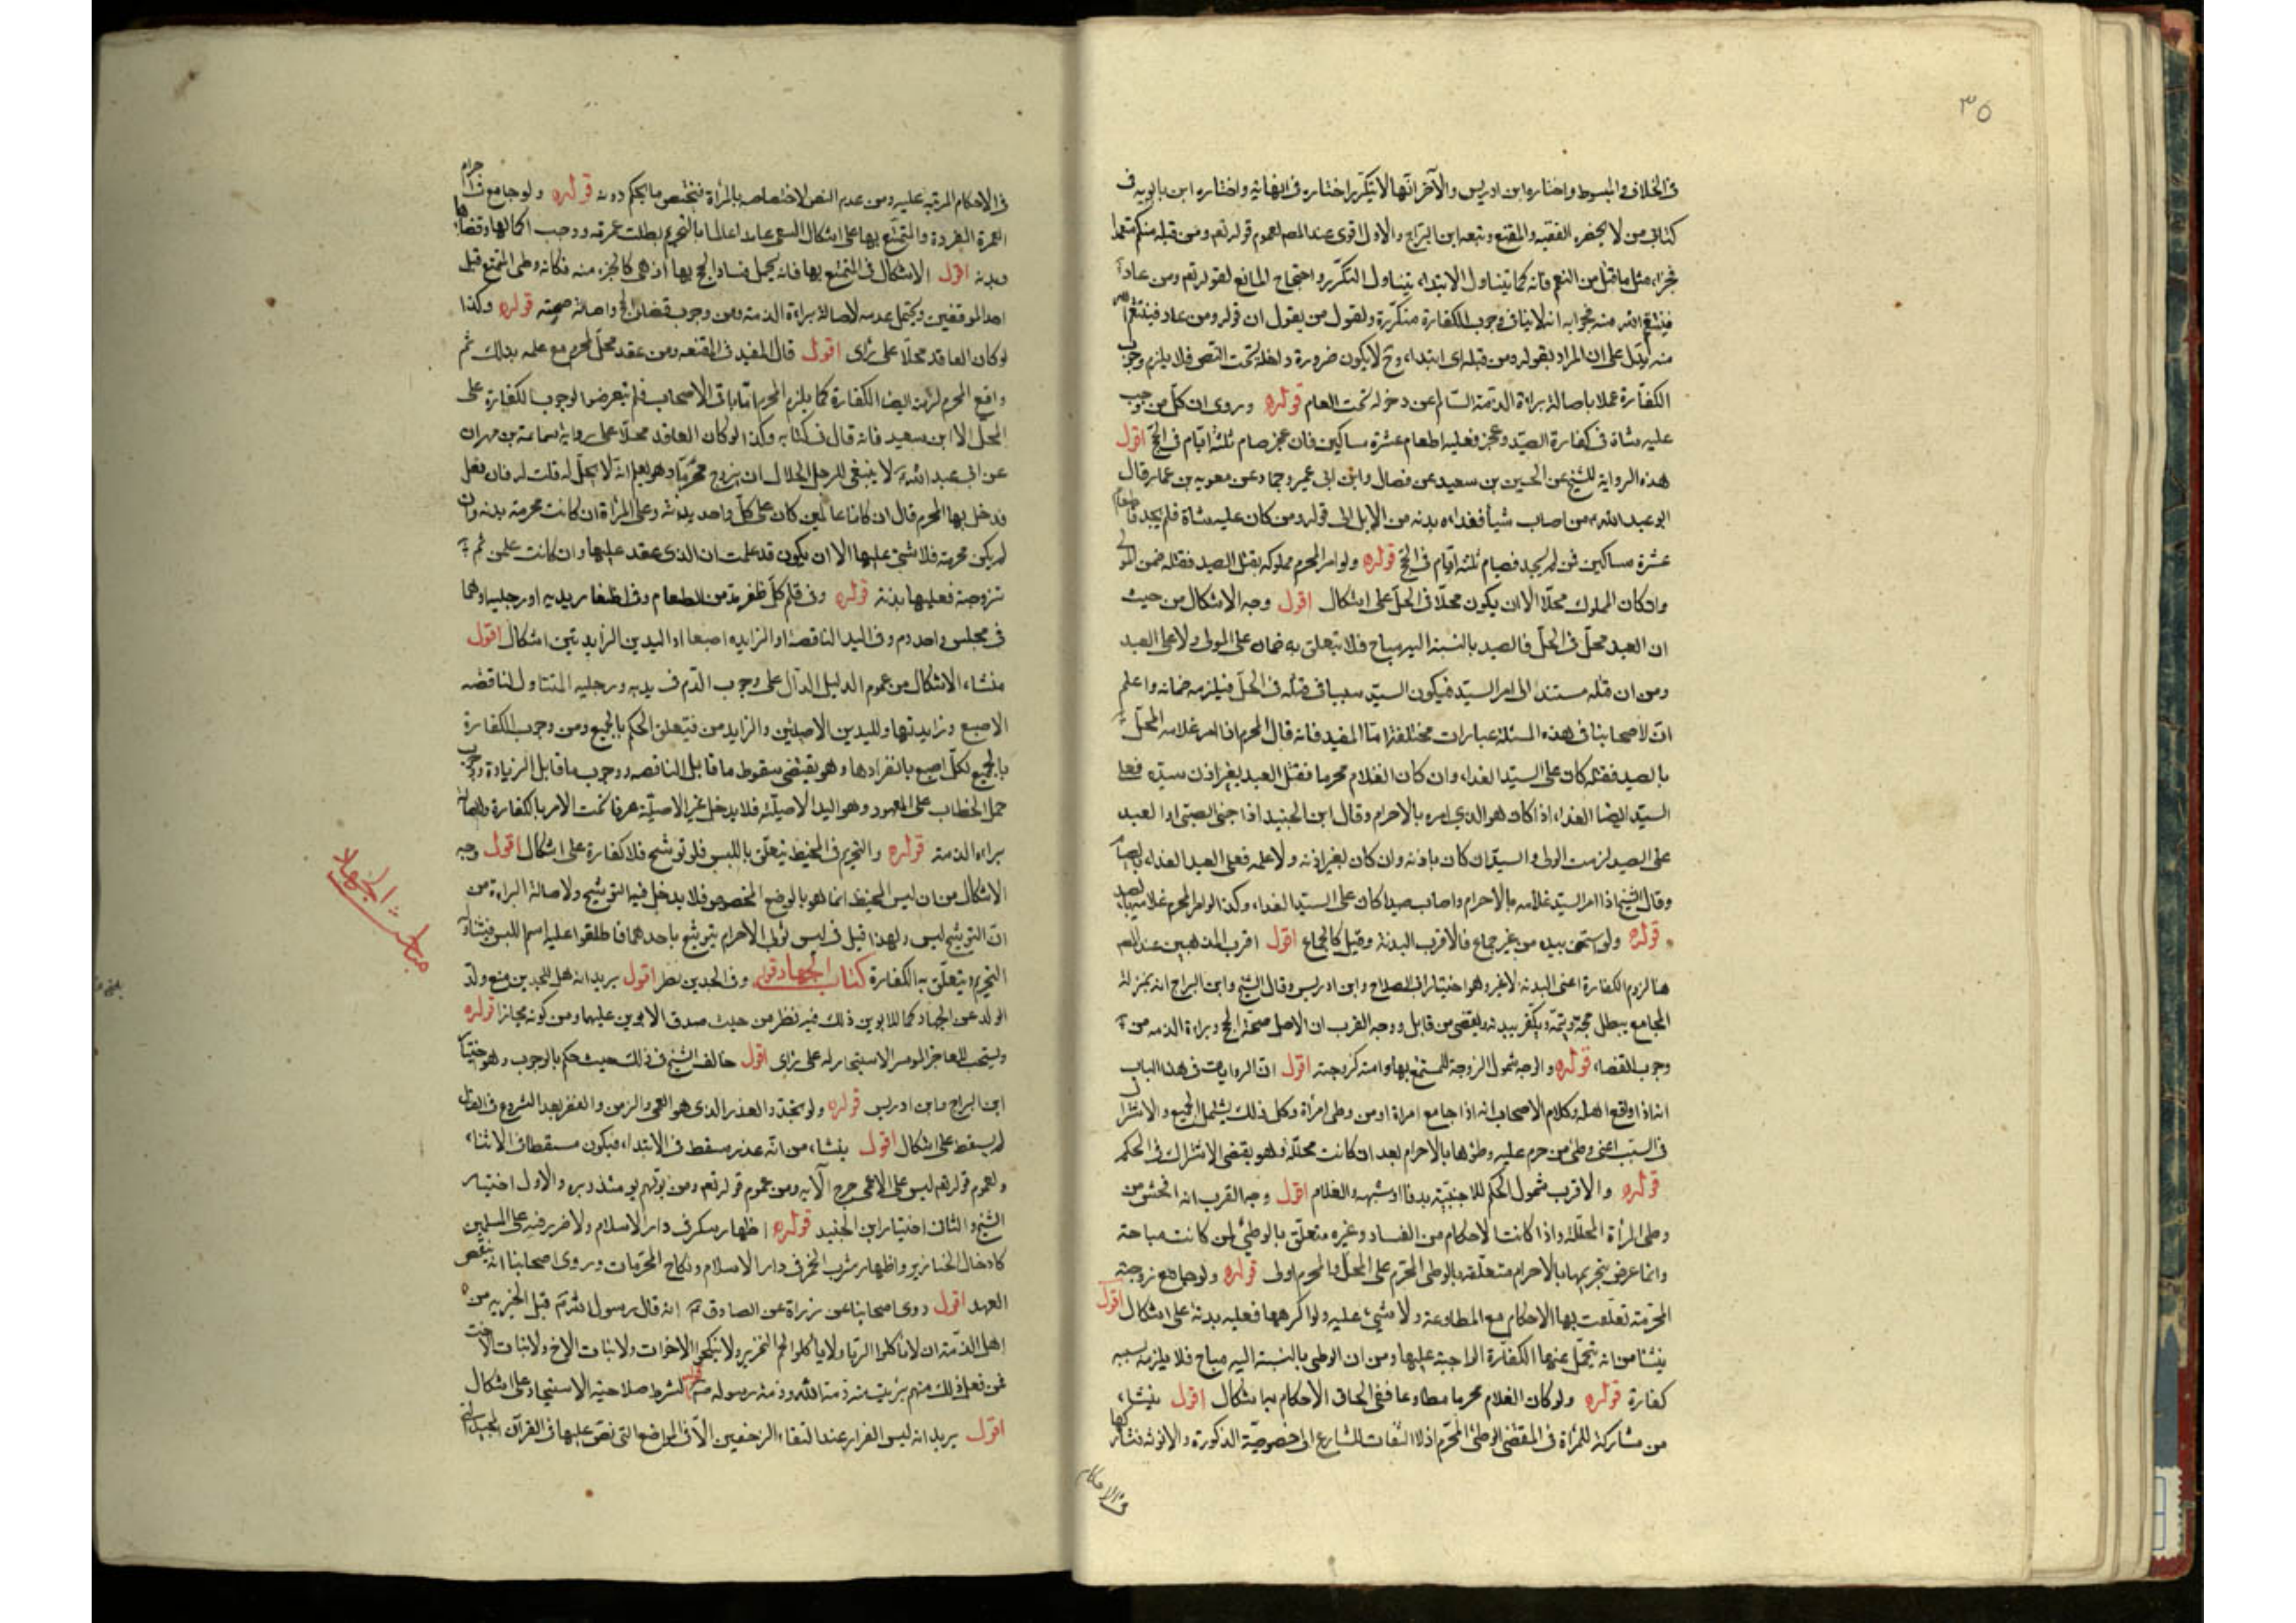 ٣٥
فى الخلاف والمبسوط واختاره ابن ادريس والآخر انها لا يتكرر اختاره فى النهاية واختاره ابن بابويه فى
كتابى من لا يحضره الفقيه والمقنع وتبعه ابن البراج والاول اقوى عند المصر لعموم قوله تعم ومن قتله منكم متعمدا
فجزاء مثل ما قتل من النعم فانه كما يتناول الابتداء يتناول التكرر واحتجاج المانع لقوله تعم ومن عاد
فينتقم الله منه فجوابه انه لا ينافى وجوب الكفارة متكررة ولقول من يقول ان قوله ومن عاد فينتقم الله
منه يدل على ان المراد بقوله ومن قتله اى ابتداء وح لا يكون ضرورة داخلة تحت النص فلا يلزم وجوب
الكفارة عملا باصالة براءة الذمة السالم عن دخوله تحت العام قوله وروى ان كل من وجب
عليه شاة فى كفارة الصيد وعجز فعليه اطعام عشرة مساكين فان عجز صام ثلثة ايام فى الحج اقول
هذه الرواية للشيخ عن الحسين بن سعيد عن فضال وابن ابى عمير وحماد عن معويه بن عمار قال
ابو عبد الله من اصاب شيأ فغداءه بدنه من الابل الى قوله ومن كان عليه شاة فلم يجد فاطعام
عشرة مساكين فمن لم يجد فصيام ثلثه ايام فى الحج قوله ولو امر المحرم مملوكه بقتل الصيد فقتله ضمن المولى
وان كان المملوك محلا الا ان يكون محلا فى الحل على اشكال اقول وجه الاشكال من حيث
ان العبد محل فى الحل فالصيد بالنسبة اليه مباح فلا يتعلق به ضمان على المولى ولا على العبد
ومن ان قتله مستند الى امر السيد فيكون السيد سببا فى قتله فى الحل فيلزمه ضمانه واعلم
ان لاصحابنا فى هذه المسئلة عبارات مختلفة اما المفيد فانه قال المحرم اذا امر غلامه المحل
بالصيد فقتله كان على السيد الفداء وان كان الغلام محرما فقتل الصيد بغير اذن سيده فعلى
السيد ايضا الفداء اذا كان هو الذي امره بالاحرام وقال ابن الجنيد اذا جنى الصبى او العبد
على الصيد لزمت الولى والسيد ان كان باذنه وان كان بغير اذنه ولا علمه فعلى العبد الفداء بالصيام
وقال الشيخ اذا امر السيد غلامه بالاحرام واصاب صيدا كان على السيد الفداء وكذا لو امر المحرم غلامه بالصيد
قوله ولو استمنى بيده من غير جماع فالاقرب البدنة وقيل كالجماع اقول اقرب المذهبين عند المصر
هنا لزوم الكفارة اعنى البدنة لا غير وهو اختيار ابى الصلاح وابن ادريس وقال الشيخ وابن البراج انه بمنزلة
المجامع يبطل حجه ويتمه ويكفر ببدنه ويقضى من قابل ووجه القرب ان الاصل صحة الحج وبراءة الذمه من
وجوب القضاء قوله والوجه شمول الزوجة للمستمتع بها وامته كزوجته اقول ان الروايات فى هذا الباب
انه اذا واقع اهله وكلام الاصحاب انه اذا جامع امراة او من وطى امرأة وكل ذلك يشتمل الجميع والاشتراك
فى السبب اعنى وطى من حرم عليه وطؤها بالاحرام بعد ان كانت محللة وهو يقتضى الاشتراك فى الحكم
قوله والاقرب شمول الحكم للاجنبية بزنا او شبهه والغلام اقول وجه القرب انه افحش من
وطى المرأة المحللة واذا كانت الاحكام من الفساد وغيره متعلق بالوطئ لمن كانت مباحة
وانما عرض تحريمها بالاحرام متعلقة بالوطى المحرم على المحل والمحرم اولى قوله ولو جامع زوجته
المحرمة تعلقت بها الاحكام مع المطاوعة ولا شيئ عليه ولو اكرهها فعليه بدنة على اشكال اقول
ينشا من انه يتحمل عنها الكفارة الواجبة عليها ومن ان الوطى بالنسبة اليه مباح فلا يلزمه بسببه
كفارة قوله ولو كان الغلام محرما مطاوعا ففى الحاق الاحكام به اشكال اقول ينشاء
من مشاركة للمرأة فى المقتضى الوطئ المحرم اذ لا التفات للشارع الى خصوصية الذكورة والانوثة فتشاركها
فى الاحكام
فى الاحكام المرتبه عليه ومن عدم النص لاختصاصه بالمرأة فتختص ما يحكم دونه قوله ولو جامع فى احرام
العمرة المفردة والمتمتع بها على اشكال السعى عامدا عالما بالتحريم بطلت عمرته ووجب اكمالها وقضاؤها
وبدنه اقول الاشكال فى المتمتع بها فانه يحتمل فساد الحج بها اذ هى كالجزء منه فكانه وطى المتمتع قبل
احد الموقفين ويحتمل عدمه لاصالة براءة الذمة ومن وجوب قضاء الحج واصالة صحته قوله وكذا
لو كان العاقد محلا على راى اقول قال المفيد فى المقنعه ومن عقد محل لمحرم مع علمه بذلك ثم
واقع المحرم لزمته ايضا الكفارة كما يلزم المحرم اما باقى الاصحاب فلم يتعرضوا لوجوب الكفارة على
المحل الا ابن سعيد فانه قال فى كتابه وكذا لو كان العاقد محلا على رواية سماعة بن مهران
عن ابى عبد الله لا ينبغى للرجل الحلال ان يزوج محرما وهو يعلم انه لا يحل له قلت له فان فعل
فدخل بها المحرم قال ان كانا عالمين كان على كل واحد بدنة وعلى المرأة ان كانت محرمة بدنه وان
لم يكن محرمة فلا شئ عليها الا ان يكون قد علمت ان الذى عقد عليها وان كانت علمت ثم
تزوجته فعليها بدنة قوله وفى قلم كل ظفر مد من الطعام وفى اظفار يديه او رجليه او هما
فى مجلس واحد دم وفى اليد الناقصة او الزايده اصبعا او اليدين الزايدتين اشكال اقول
منشاء الاشكال من عموم الدليل الدال على وجوب الدم فى يديه ورجليه المتناول لناقصه
الاصبع وزايدتها ولليدين الاصلتين والزايدتين فيتعلق الحكم بالجميع ومن وجوب الكفارة
بالجميع لكل اصبع بانفرادها وهو يقتضى سقوط ما قابل الناقصه ووجوب ما قابل الزيادة ووجوب
حمل الخطاب على المعهود وهو اليد الاصيلة فلا يدخل غير الاصيلة عرفا تحت الامر بالكفارة ولاصالة
براءه الذمة قوله والتحريم فى المخيط يتعلق باللبس فلو توشح فلا كفارة على اشكال اقول وجه
الاشكال من ان لبس المخيط انما هو بالوضع المخصوص فلا يدخل فيه التوشيح ولاصالة البراءة من
ان التوشيح لبس ولهذا قيل فى لبس ثوبى الاحرام يتوشح باحدهما فاطلقوا عليه اسم اللبس فيتناوله
التحريم ويتعلق به الكفارة كتاب الجهاد قوله وفى الجدين نظر اقول يريد انه هل للجدين منع ولد
الولد عن الجهاد كما للابوين ذلك فيه نظر من حيث صدق الابوين عليهما ومن كونه مجازا قوله
ويستحب للعاجز الموسر الاستيجار له على راى اقول خالف الشيخ فى ذلك حيث حكم بالوجوب وهو اختيار
ابن البراج وابن ادريس قوله ولو تجدد العذر الذى هو العمى والزمن والفقر بعد الشروع فى القتال
لم يسقط على اشكال اقول ينشاء من انه عذر مسقط فى الابتداء فيكون مسقطا فى الاثناء
ولعموم قوله تعم ليس على الاعمى حرج الآيه ومن عموم قوله تعم ومن يولهم يومئذ دبره والاول اختيار
الشيخ والثانى اختيار ابن الجنيد قوله اظهار منكر فى دار الاسلام ولا ضرر فيه على المسلمين
كادخال الخنازير واظهار شرب الخمر فى دار الاسلام ونكاح المحرمات وروى اصحابنا انه ينقض
العهد اقول روى اصحابنا عن زرارة عن الصادق انه قال رسول الله قبل الجزيه من
اهل الذمة ان لا ياكلوا الربا ولا ياكلوا لحم الخنزير ولا ينكحوا الاخوات ولا بنات الاخ ولا بنات الاخت
فمن فعل ذلك منهم برئت منه ذمة الله وذمة رسوله قوله لشرط صلاحية الاستنجاد على اشكال
اقول يريد انه ليس الفرار عند التقاء الزحفين الا فى المواضع التى نص عليها فى القرآن المجيد
مباحث الجهاد